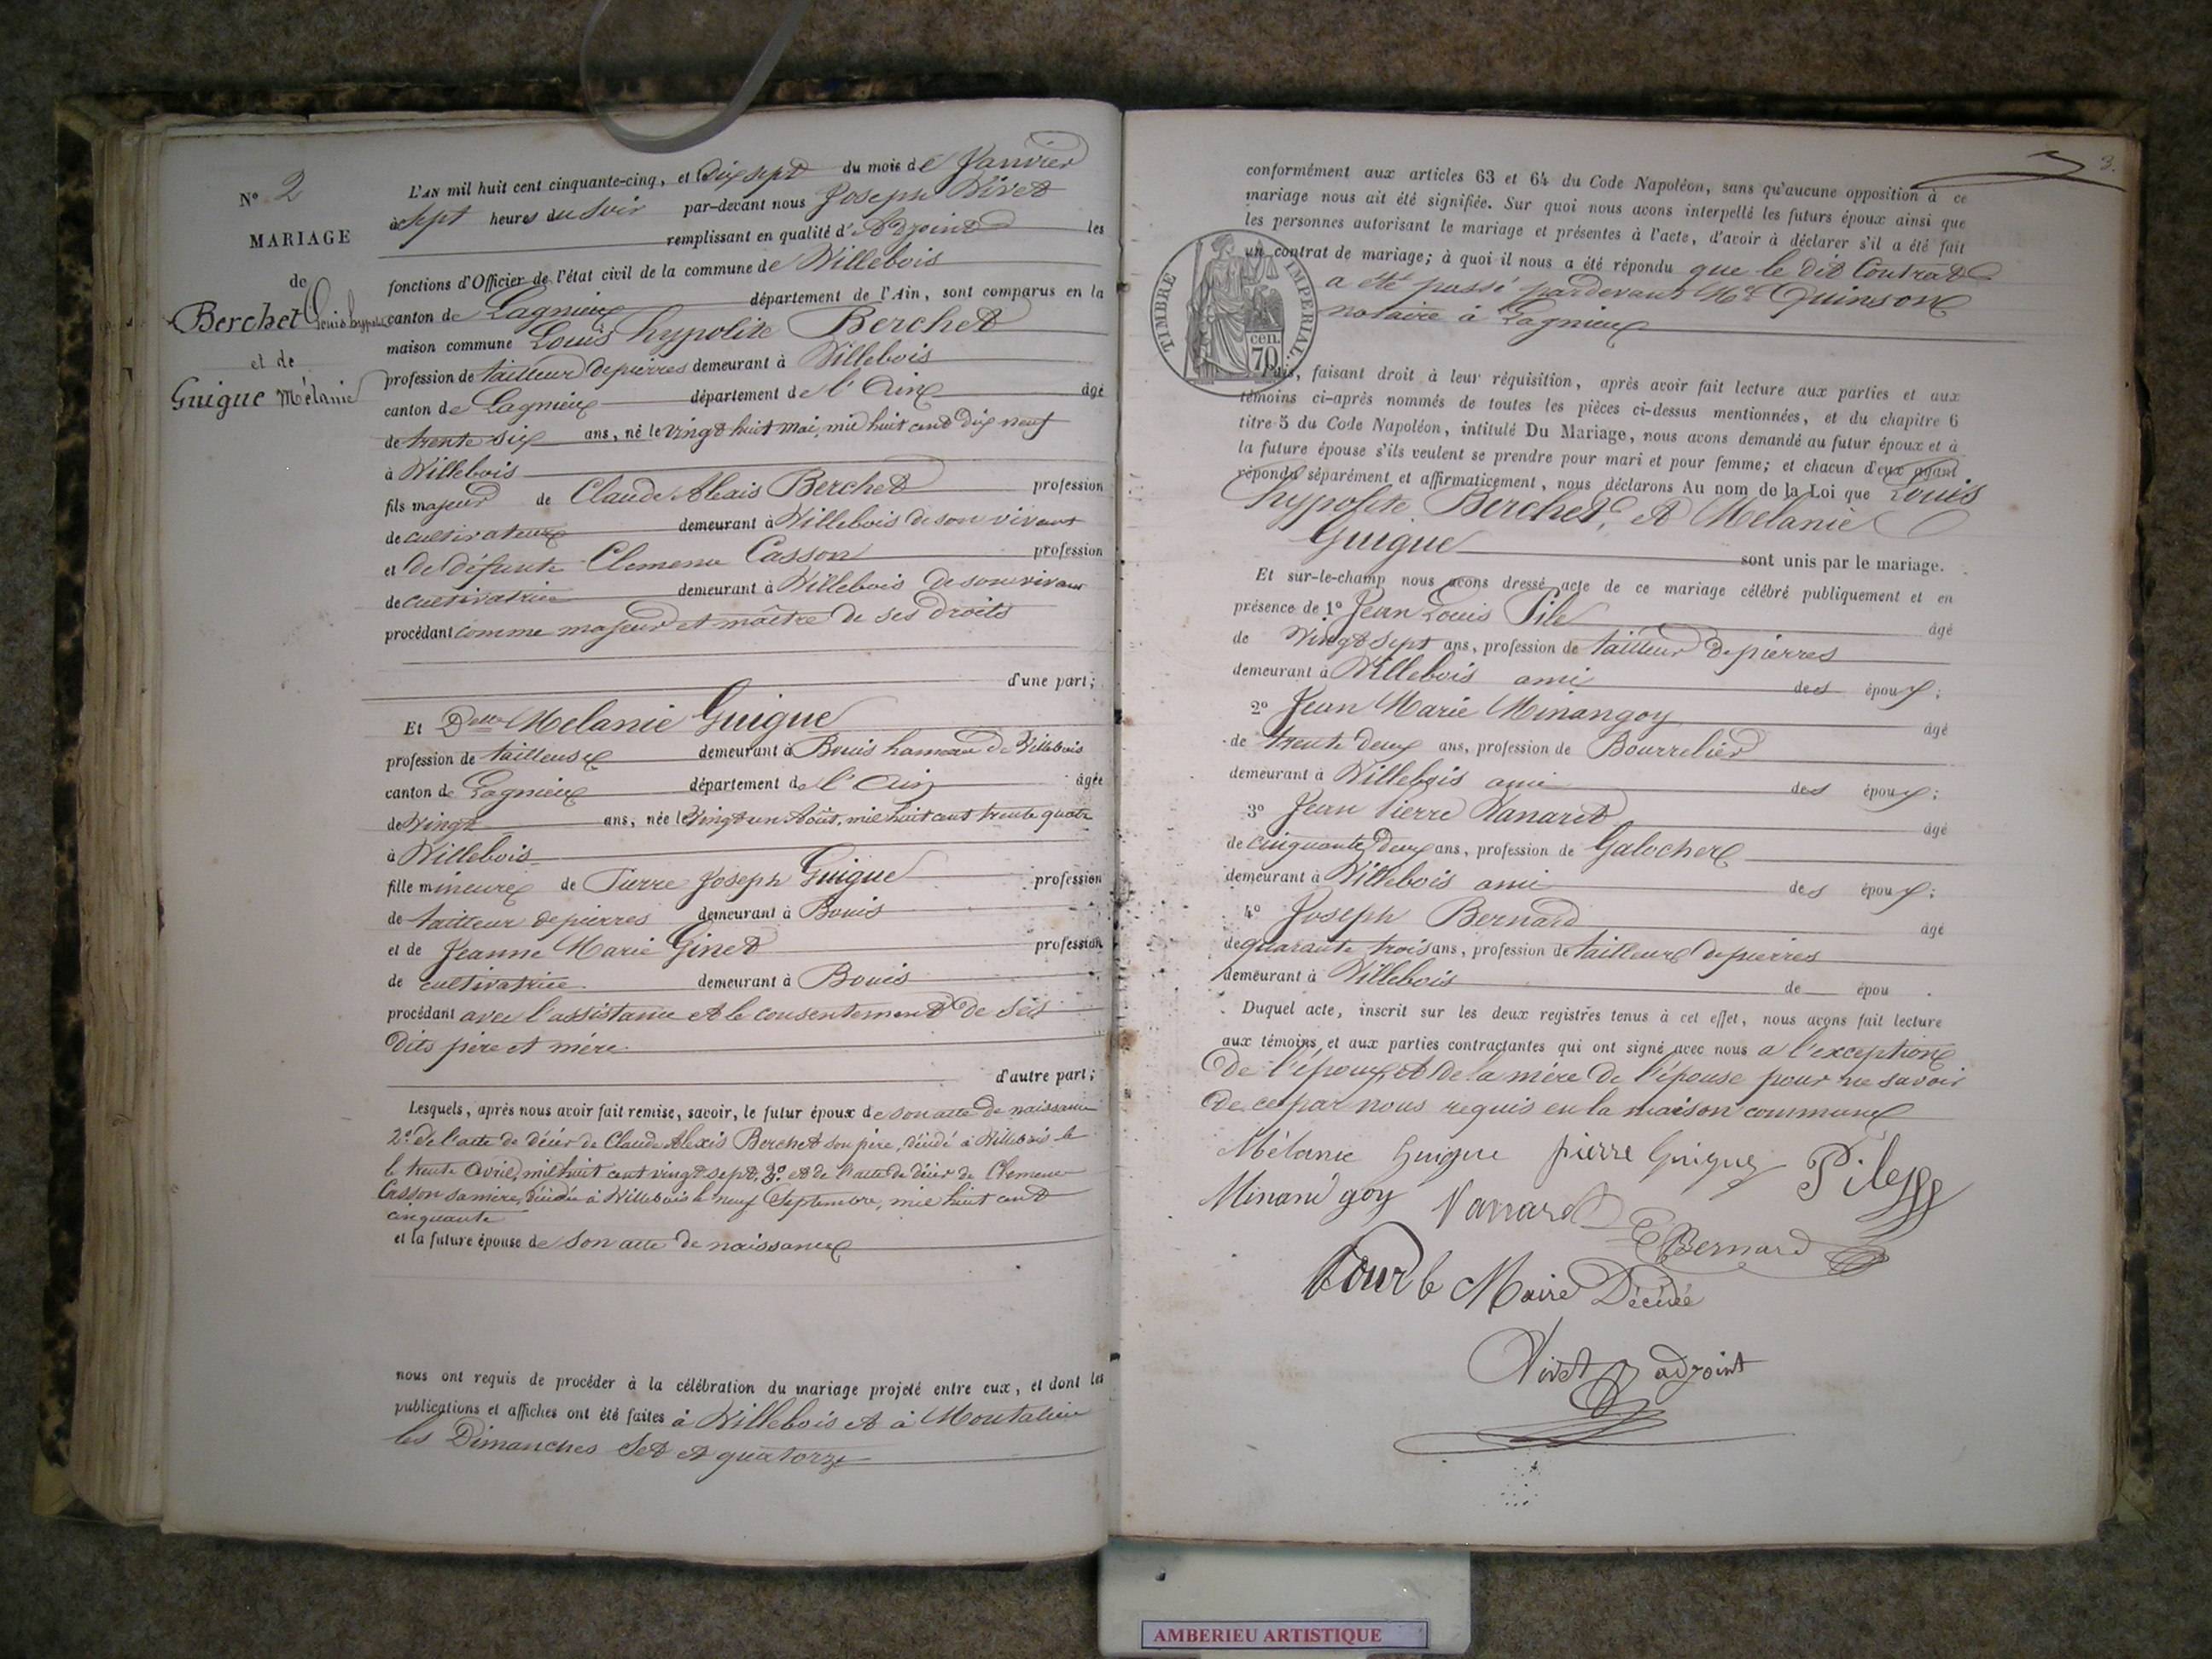 No 2
MARIAGE
de
Berchet Louis hypolite
et de
Guigue Mélanie
L'AN mil huit cent cinquante-cinq, et Dix sept du mois de Janvier
à Sept heures du Soir par-devant nous Joseph Vivet
remplissant en qualité d'Adjoint les
fonctions d'Officier de l'état civil de la commune de Villebois
canton de Lagnieu département de l'Ain, sont comparus en la
maison commune Louis hypolite Berchet
profession de tailleur de pierres demeurant à Villebois
canton de Lagnieu département de l'Ain âgé
de trente six ans, né le vingt huit Mai, mil huit cent dix neuf
à Villebois
fils majeur de Claude Alexis Berchet profession
de cultivateur demeurant à Villebois de son vivant
et de défunte Clemence Casson profession
de cultivatrice demeurant à Villebois de son vivant
procédant comme majeur et maître de ses droits
d'une part;
Et Delle Melanie Guigue
profession de tailleuse demeurant à Bouis hameau de Villebois
canton de Lagnieu département de l'Ain âgée
de Vingt ans, née le Vingt un Août, mil huit cent trente quatre
à Villebois
fille mineure de Pierre Joseph Guigue profession
de tailleur de pierres demeurant à Bouis
et de Jeanne Marie Ginet profession
de cultivatrice demeurant à Bouis
procédant avec l'assistance et le consentement de ses
dits père et mère
d'autre part;
Lesquels, après nous avoir fait remise, savoir, le futur époux de son acte de naissance
2o De l'acte de décès de Claude Alexis Berchet son père, décédé à Villebois le
le trente Avril, mil huit cent vingt sept, 3o et de l'acte de décès de Clemence
Casson sa mère, décédée à Villebois le neuf Septembre, mil huit cent
cinquante
et la future épouse de son acte de naissance
nous ont requis de procéder à la célébration du mariage projeté entre eux, et dont les
publications et affiches ont été faites à Villebois et à Montalieu
les Dimanches Set et quatorze
3.
conformément aux articles 63 et 64 du Code Napoléon, sans qu'aucune opposition à ce
mariage nous ait été signifiée. Sur quoi nous avons interpellé les futurs époux ainsi que
les personnes autorisant le mariage et présentes à l'acte, d'avoir à déclarer s'il a été fait
un contrat de mariage; à quoi il nous a été répondu que le dit Contrat
a été passé pardevant Me Quinson
notaire à Lagnieu
TIMBRE IMPERIAL
cen.
70
Puis, faisant droit à leur réquisition, après avoir fait lecture aux parties et aux
témoins ci-après nommés de toutes les pièces ci-dessus mentionnées, et du chapitre 6
titre 5 du Code Napoléon, intitulé Du Mariage, nous avons demandé au futur époux et à
la future épouse s'ils veulent se prendre pour mari et pour femme; et chacun d'eux ayant
répondu séparément et affirmativement, nous déclarons Au nom de la Loi que Louis
hypolite Berchet, et Melanie
Guigue sont unis par le mariage.
Et sur-le-champ nous avons dressé acte de ce mariage célébré publiquement et en
présence de 1o Jean Louis Pile âgé
de Vingt Sept ans, profession de tailleur de pierres
demeurant à Villebois ami des époux;
2o Jean Marie Minangoy âgé
de trente deux ans, profession de Bourrelier
demeurant à Villebois ami des époux;
3o Jean Pierre Vanaret âgé
de cinquante deux ans, profession de Galocher
demeurant à Villebois ami des époux;
4o Joseph Bernard âgé
de quarante trois ans, profession de tailleur de pierres
demeurant à Villebois de épou
Duquel acte, inscrit sur les deux registres tenus à cet effet, nous avons fait lecture
aux témoins et aux parties contractantes qui ont signé avec nous a l'exception
De l'époux et de la mère de l'épouse pour ne savoir
de ce par nous requis en la maison commune
Mélanie Guigue pierre Guigue Pile
Minand goy Vanaret Bernard
Pour le Maire Décédé
Vivet adjoint
AMBERIEU ARTISTIQUE